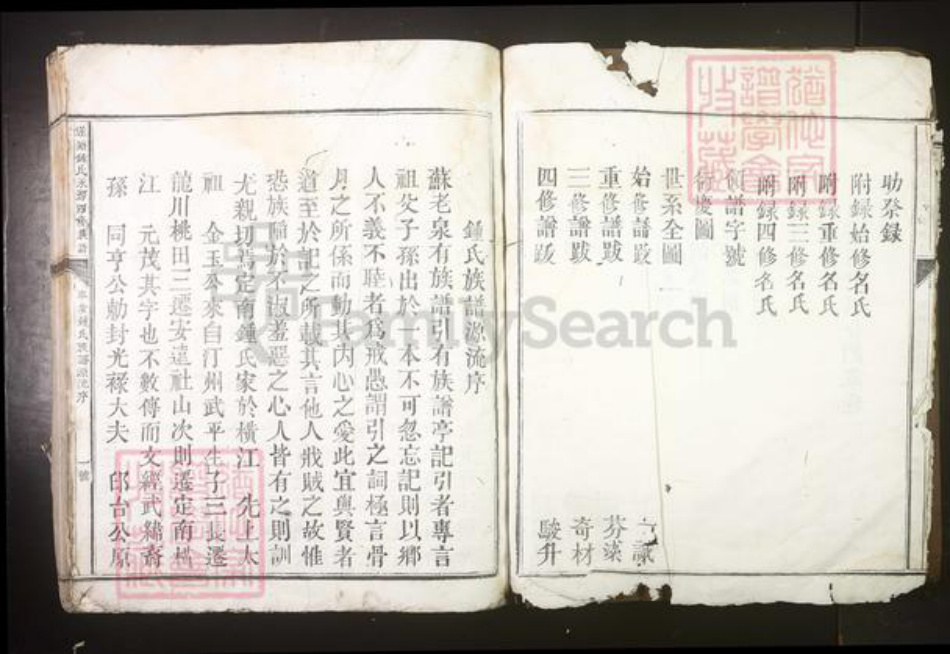 助發録
附録始修名氏
附録重修名氏
附録三修名氏
附録四修名氏
譜字號
慶圖
世系全圖
始修譜跋
重修譜跋 芬
三修譜跋 奇材
四修譜跋 駿升
鍾氏族譜源流序
蘇老泉有族譜引有族譜亭記引者專言
祖父子孫出於一本不可忽忘記則以鄉
人不義不睦者爲戒愚謂引之詞極言骨
月之所係而動其内心之愛此宜與賢者
道至於記之所載其言他人戕賊之故惟
恐族隨於不淑羞惡之心人皆有之則訓
尤親切焉定南鍾氏家於橫江 先上太
祖 金玉公來自汀州武平生子三長遷
龍川桃田三遷安遠社山次則遷定南橫
江 元茂其字也不數傳而文經武緯裔
孫 同亨公勅封光祿大夫 邱台公原
FamilySearch